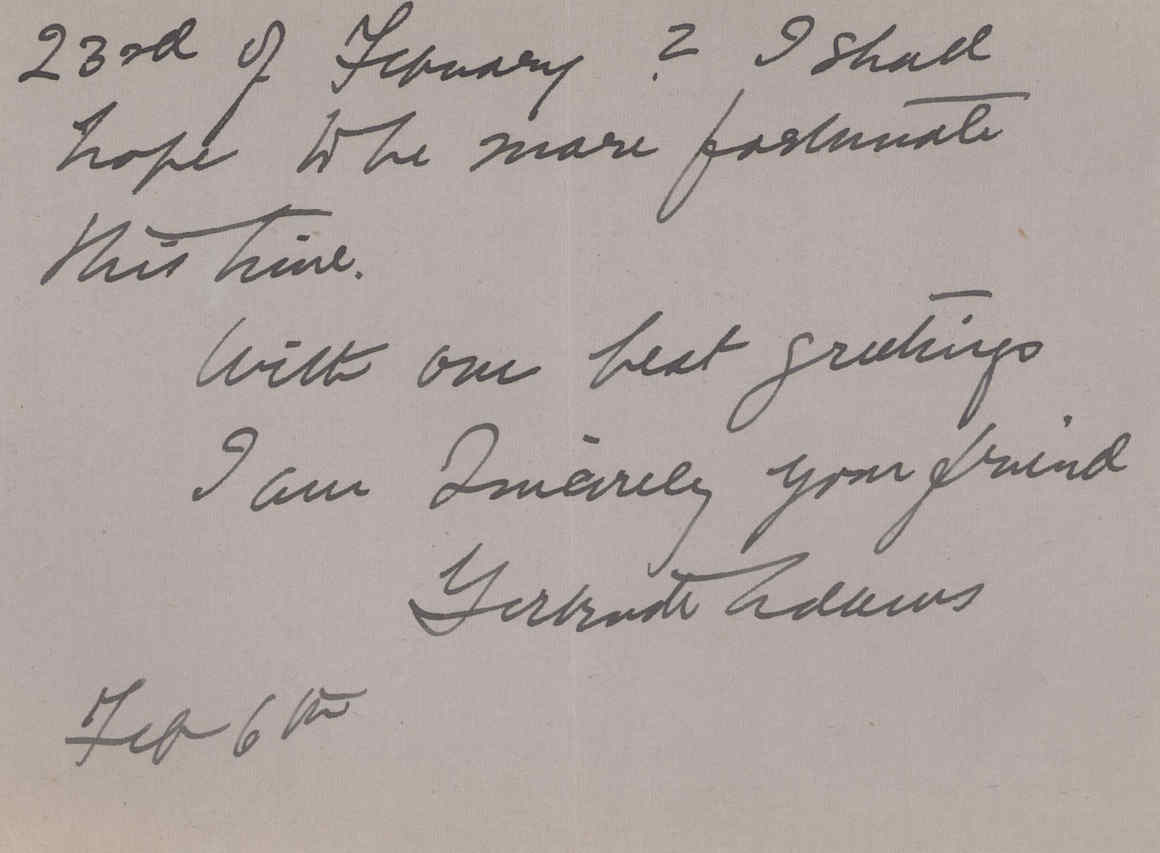 23rd of February? I shall
hope to be more fortunate
this time.
With our best greetings
I am Sincerely your friend
Gertrude Adams
Feb 6th